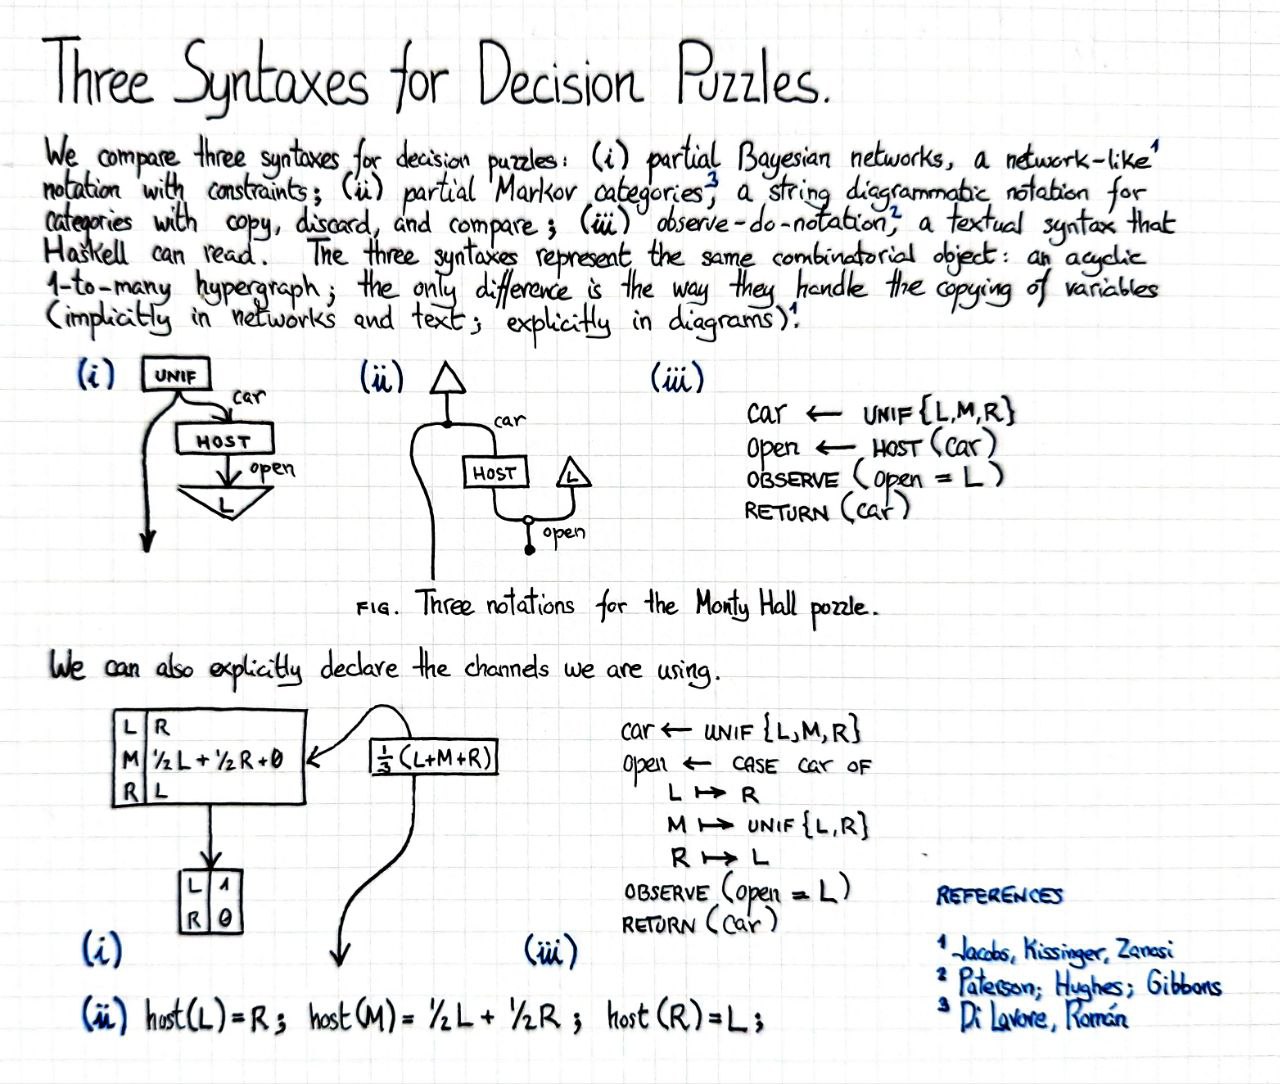 Three Syntaxes for Decision Puzzles.
We compare three syntaxes for decision puzzles: (i) partial Bayesian networks, a network-like¹
notation with constraints; (ii) partial Markov categories³, a string diagrammatic notation for
categories with copy, discard, and compare; (iii) observe-do-notation², a textual syntax that
Haskell can read. The three syntaxes represent the same combinatorial object: an acyclic
1-to-many hypergraph; the only difference is the way they handle the copying of variables
(implicitly in networks and text; explicitly in diagrams)¹.
(i)
UNIF
car
HOST
open
L
(ii)
car
HOST
L
open
(iii)
car ← UNIF{L,M,R}
open ← HOST(car)
OBSERVE (open = L)
RETURN (car)
FIG. Three notations for the Monty Hall puzzle.
We can also explicitly declare the channels we are using.
L R
M ½L + ½R + 0
R L
⅓(L+M+R)
L 1
R 0
(i)
car ← UNIF {L,M,R}
open ← CASE car OF
L ↦ R
M ↦ UNIF{L,R}
R ↦ L
OBSERVE (open = L)
RETURN (car)
(iii)
(ii) host(L)=R; host(M)= ½L + ½R; host(R)=L;
REFERENCES
¹ Jacobs, Kissinger, Zanasi
² Paterson; Hughes; Gibbons
³ Di Lavore, Román